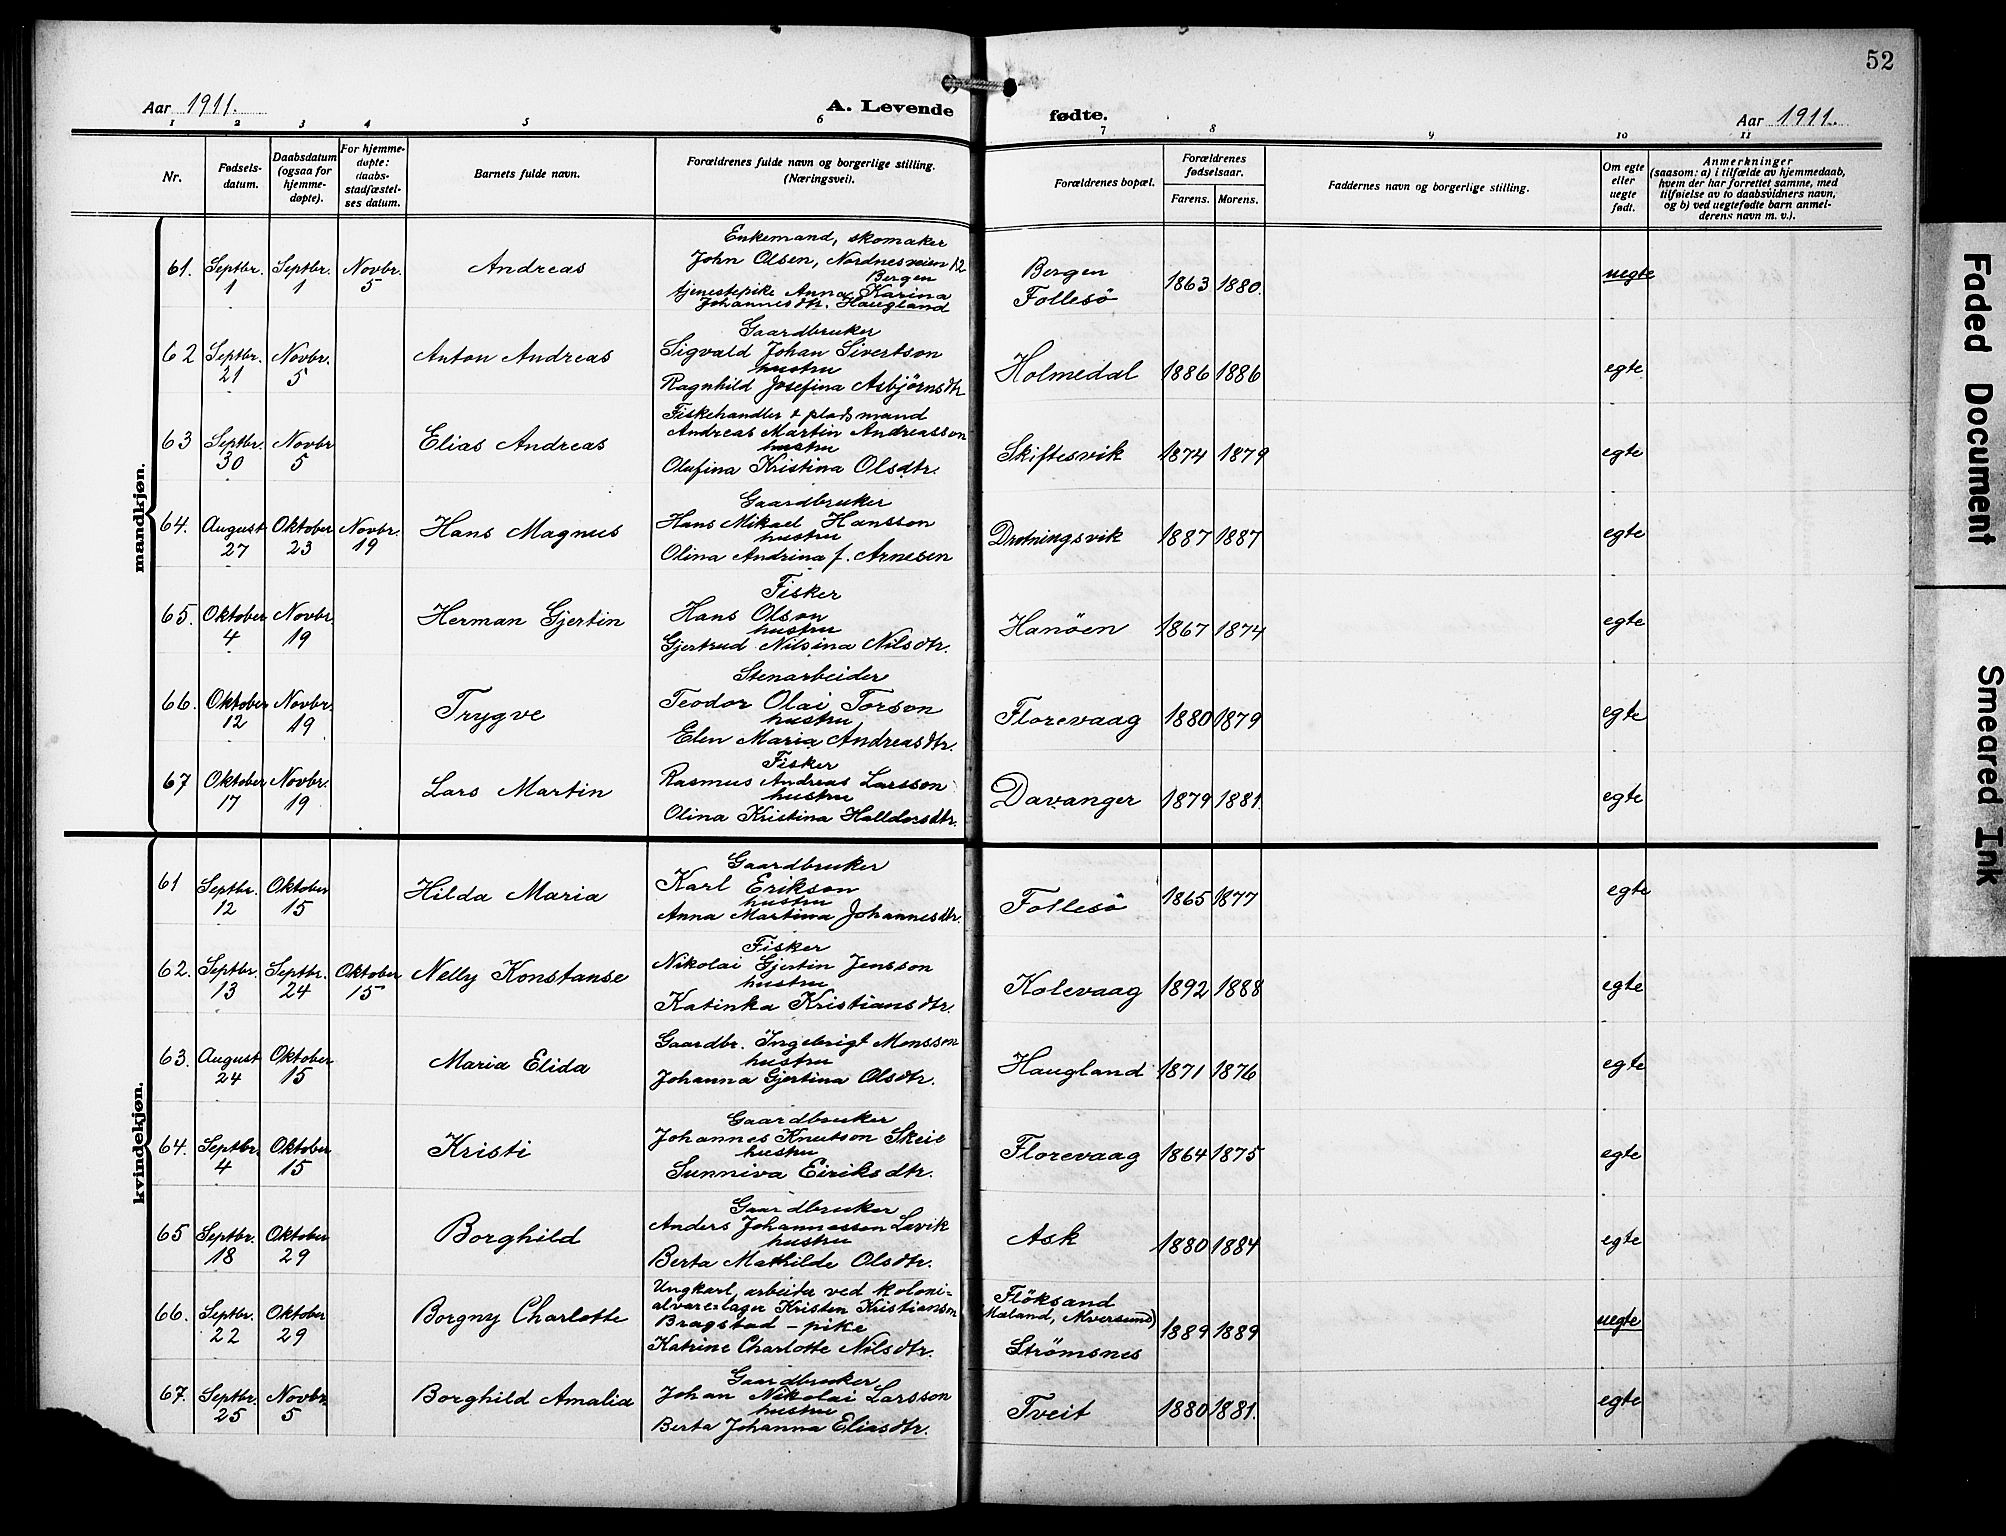 52
Aar 1911.
A. Levende fødte.
Aar 1911.
1 2 3 4 5 6 7 8 9 10 11
Nr.
Fødsels-
datum.
Daabsdatum
(ogsaa for
hjemme-
døpte).
For hjemme-
døpte:
daabs-
stadfæstel-
ses datum.
Barnets fulde navn.
Forældrenes fulde navn og borgerlige stilling.
(Næringsvei).
Forældrenes bopæl.
Forældrenes
fødselsaar.
Farens. Morens.
Faddernes navn og borgerlige stilling.
Om egte
eller
uegte
født.
Anmerkninger
(saasom: a) i tilfælde av hjemmedaab,
hvem der har forrettet samme, med
tilføielse av to daabsvidners navn,
og b) ved uegtefødte barn anmel-
derens navn m. v.).
mandkjøn.
61. Septbr. 1 Septbr. 1 Novbr. 5 Andreas
Enkemand, skomaker
John Olsen, Nordnesveien 12
Bergen
tjenestepike Anna Karina
Johannesdtr. Haugland
Bergen
Follesö
1863 1880. uegte
62 Septbr. 21 Novbr. 5 Anton Andreas
Gaardbruker
Sigvald Johan Sivertson
hustru
Ragnhild Josefina Asbjörnsdtr
Holmedal 1886 1886 egte
63 Septbr. 30 Novbr 5 Elias Andreas
Fiskehandler & pladsmand
Andreas Martin Andreasson
hustru
Olufina Kristina Olsdtr.
Skiftesvik 1874 1879 egte
64. August 27 Oktober 23 Novbr. 19 Hans Magnus
Gaardbruker
Hans Mikael Hansson
hustru
Olina Andrina f. Arnesen
Drotningsvik 1887 1887 egte
65. Oktober 4 Novbr. 19 Herman Gjertin
Fisker
Hans Olson
hustru
Gjertrud Nilsina Nilsdtr.
Hanöen 1867 1874 egte
66. Oktober 12 Novbr. 19 Trygve
Stenarbeider
Teodor Olai Torson
hustru
Elen Maria Andreasdtr.
Florevaag 1880 1879 egte
67 Oktober 17 Novbr. 19 Lars Martin
Fisker
Rasmus Andreas Larsson
hustru
Olina Kristina Halldorsdtr.
Davanger 1879 1881. egte
kvindekjøn.
61 Septbr. 12 Oktober 15 Hilda Maria
Gaardbruker
Karl Erikson
hustru
Anna Martina Johannesdtr.
Follesö 1865 1877 egte
62. Septbr. 13 Septbr. 24 Oktober 15 Nelly Konstanse
Fisker
Nikolai Gjertin Jensson
hustru
Katinka Kristiansdtr.
Kolevaag 1892 1888 egte
63. August 24 Oktober 15 Maria Elida
Gaardbr. Ingebrigt Monsson
hustru
Johanna Gjertina Olsdtr.
Haugland 1871 1876 egte
64. Septbr. 4 Oktober 15 Kristi
Gaardbruker
Johannes Knutson Skeie
hustru
Sunniva Eiriksdtr.
Florevaag 1864 1875 egte
65 Septbr. 18 Oktober 29 Borghild
Gaardbruker
Anders Johannessen Lavik
hustru
Berta Mathilde Olsdtr.
Ask 1880 1884 egte
66. Septbr. 22 Oktober 29 Borgny Charlotte
Ungkarl, arbeider ved koloni-
alvareslager Kristen Kristianson
Bragstad - pike
Katrine Charlotte Nilsdtr.
Flöksand
Mæland, Alversund)
Strömsnes
1889 1889 uegte
67. Septbr. 25 Novbr. 5 Borghild Amalia
Gaardbruker
Johan Nikolai Larsson
hustru
Berta Johanna Eliasdtr.
Tveit 1880 1881. egte
Faded Document
Smeared Ink